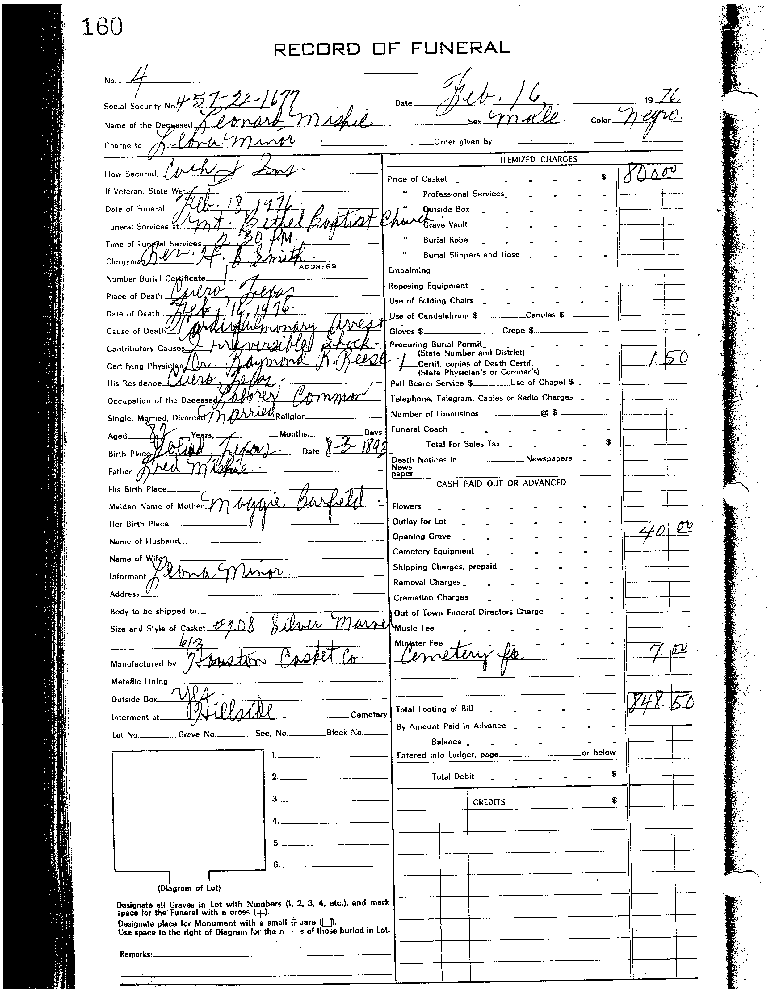 160
RECORD OF FUNERAL
No. 4
Social Security No. 457-22-1677 Date Feb. 16 1976
Name of the Deceased Leonard Miskie Sex Male Color Negro
Charge to Leona Minor Order given by
How Secured
If Veteran, State War
Date of Funeral Feb. 18, 1976
Funeral Services at Mt. Bethel Baptist Church
Time of Funeral Services 2:30 P.M.
Clergyman Rev. H. B. Smith
ADDRESS
Number Burial Certificate
Place of Death Cuero, Texas
Date of Death Feb. 14, 1976
Cause of Death Cardiopulmonary Arrest
Contributory Causes Irreversible Shock
Certifying Physician Dr. Raymond R. Reese
His Residence Cuero, Texas
Occupation of the Deceased Laborer Common
Single, Married, Divorced Married Religion
Aged Years, Months, Days
Birth Place Texas Date 8-3-1892
Father Fred Miskie
His Birth Place
Maiden Name of Mother Maggie Barfield
Her Birth Place
Name of Husband
Name of Wife
Informant Leona Minor
Address
Body to be shipped to
Size and Style of Casket Silver
6/3
Manufactured by Houston Casket Co
Metallic Lining
Outside Box
Interment at Hillside Cemetery
Lot No. Grave No. Sec. No. Block No.
1.
2.
3.
4.
5.
6.
(Diagram of Lot)
Designate all Graves in Lot with Numbers (1, 2, 3, 4, etc.), and mark
space for the Funeral with a cross (+).
Designate place for Monument with a small
Use space to the right of Diagram for the of those buried in Lot.
Remarks:
ITEMIZED CHARGES
Price of Casket $ 800.00
" Professional Services
" Outside Box
" Grave Vault
" Burial Robe
" Burial Slippers and Hose
Embalming
Reposing Equipment
Use of Folding Chairs
Use of Candelabrum $ Candles $
Gloves $ Crepe $
Procuring Burial Permit
(State Number and District)
1 Certif. copies of Death Certif. 1 50
(State Physician's or Coroner's)
Pall Bearer Service $ Use of Chapel $
Telephone, Telegram, Cables or Radio Charges
Number of Limousines @ $
Funeral Coach
Total For Sales Tax $
Death Notices in Newspapers
News
paper
CASH PAID OUT OR ADVANCED
Flowers
Outlay for Lot
Opening Grave 40 00
Cemetery Equipment
Shipping Charges, prepaid
Removal Charges
Cremation Charges
Out of Town Funeral Directors Charge
Music Fee
Minister Fee
Cemetery fee 7 00
Total Footing of Bill 848.50
By Amount Paid in Advance
Balance
Entered into Ledger, page or below
Total Debit $
CREDITS $